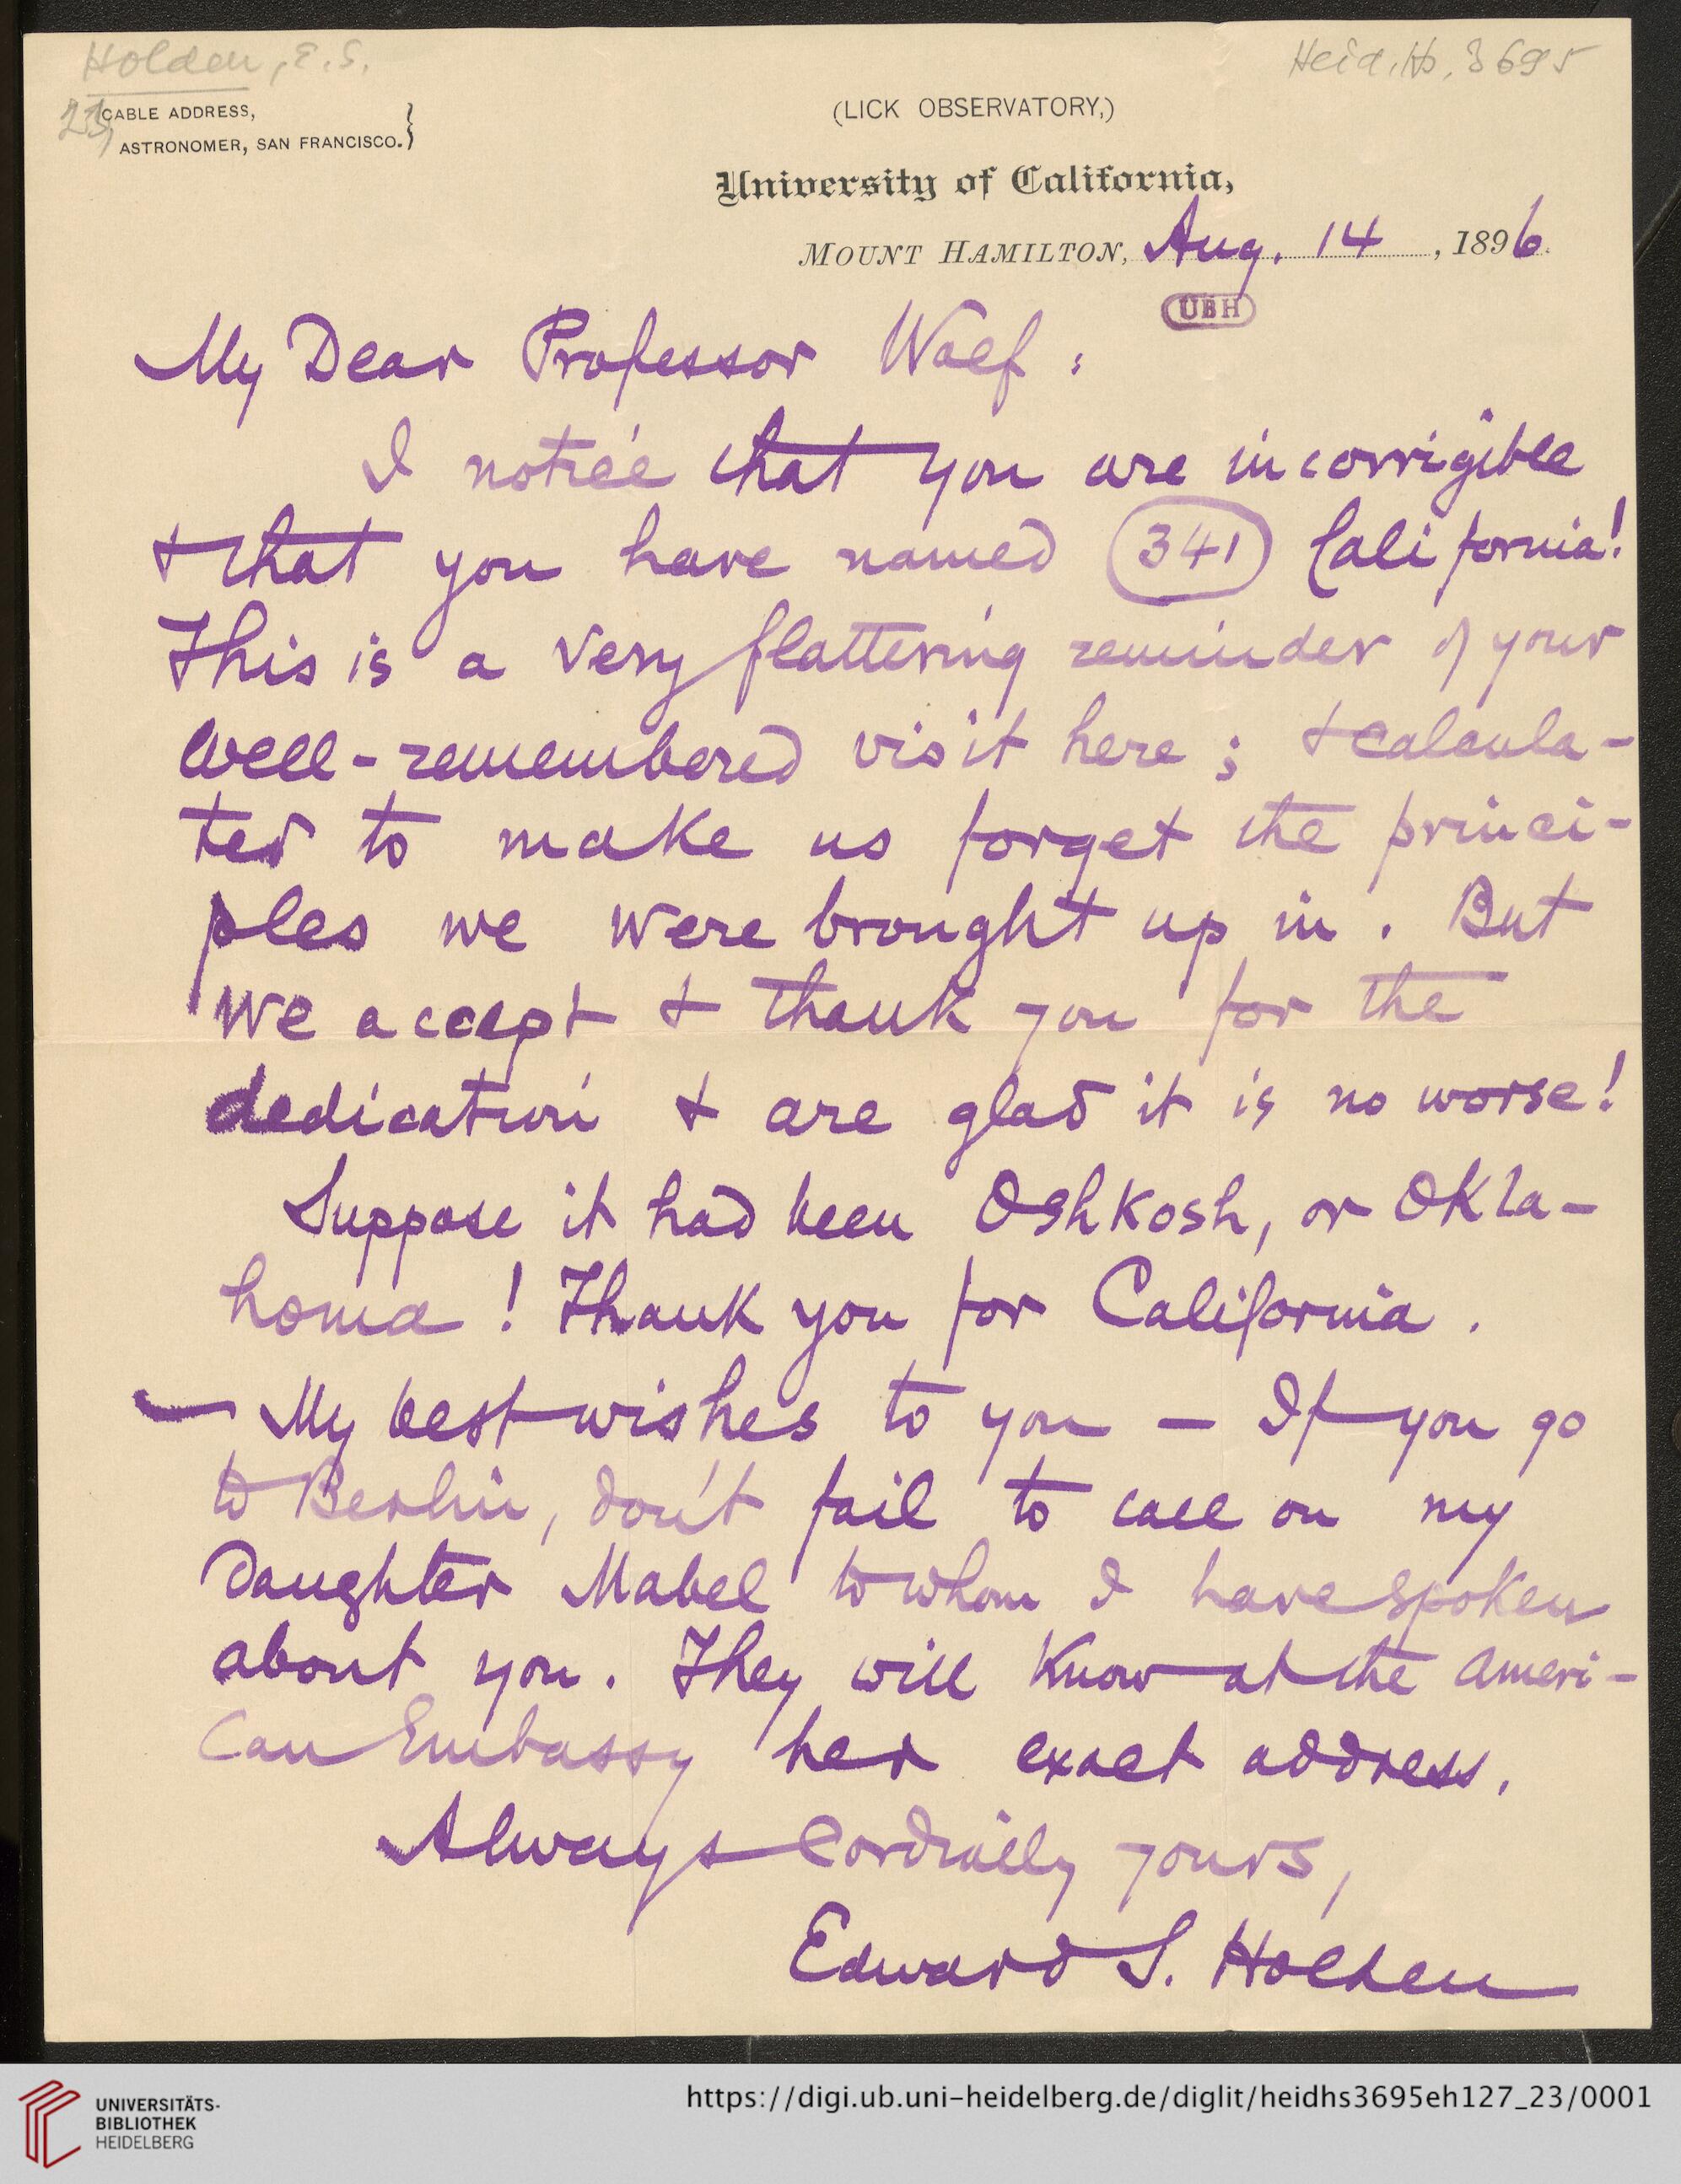 Holden, E.S.
Heid. Hs. 3695
23,
CABLE ADDRESS,
ASTRONOMER, SAN FRANCISCO.}
(LICK OBSERVATORY,)
University of California,
MOUNT HAMILTON, Aug. 14, 1896.
UBH
My Dear Professor Wolf:
I notice that you are incorrigible
& that you have named (341) California!
This is a very flattering reminder of your
well-remembered visit here; & calcula-
ted to make us forget the princi-
ples we were brought up in. But
we accept & thank you for the
dedication & are glad it is no worse!
Suppose it had been Oshkosh, or Okla-
homa! Thank you for California.
— My best wishes to you — If you go
to Berlin, don't fail to call on my
Daughter Mabel to whom I have spoken
about you. They will know at the Ameri-
can Embassy her exact address.
Always cordially yours,
Edward S. Holden
UNIVERSITÄTS-
BIBLIOTHEK
HEIDELBERG
https://digi.ub.uni-heidelberg.de/diglit/heidhs3695eh127_23/0001